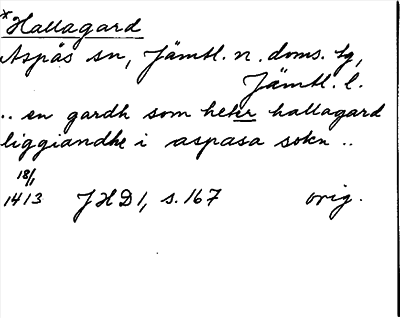 *Hallagard
Aspås sn, Jämtl. n. doms. tg,
Jämtl. l.
.. en gardh som heter hallagard
liggiandhe i aspasa sokn ..
18/1
1413 JHD 1, s. 167 orig.